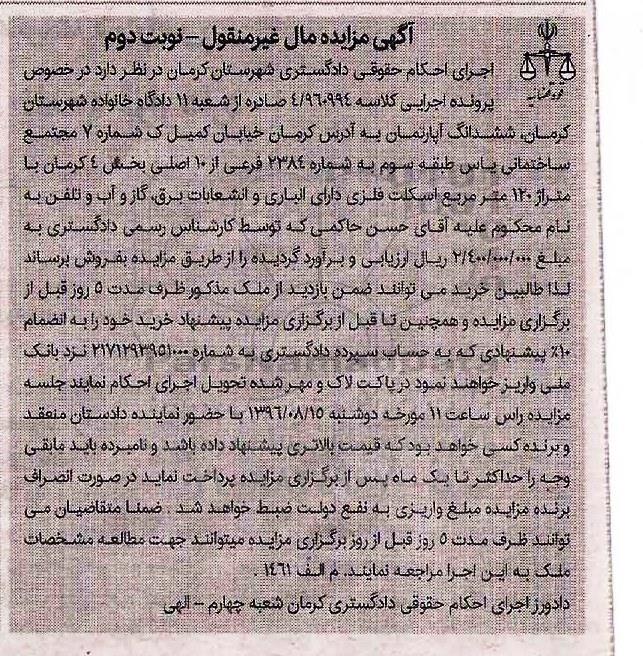 آگهی مزایده مال غیرمنقول – نوبت دوم
اجرای احکام حقوقی دادگستری شهرستان کرمان در نظر دارد در خصوص
پرونده اجرایی کلاسه ٤/٩٦٠٩٩٤ صادره از شعبه ١١ دادگاه خانواده شهرستان
کرمان، ششدانگ آپارتمان به آدرس کرمان خیابان کمیل ک شماره ٧ مجتمع
ساختمانی یاس طبقه سوم به شماره ٢٣٨٤ فرعی از ١٠ اصلی بخش ٤ کرمان با
متراژ ١٢٠ متر مربع اسکلت فلزی دارای انباری و انشعابات برق، گاز و آب و تلفن به
نام محکوم علیه آقای حسن حاکمی که توسط کارشناس رسمی دادگستری به
مبلغ ٢/٤٠٠/٠٠٠/٠٠٠ ریال ارزیابی و برآورد گردیده را از طریق مزایده بفروش برساند
لذا طالبین خرید می توانند ضمن بازدید از ملک مذکور ظرف مدت ٥ روز قبل از
برگزاری مزایده و همچنین تا قبل از برگزاری مزایده پیشنهاد خرید خود را به انضمام
١٠٪ پیشنهادی که به حساب سپرده دادگستری به شماره ٢١٧١٢٩٣٩٥١٠٠٠ نزد بانک
ملی واریز خواهند نمود در پاکت لاک و مهر شده تحویل اجرای احکام نمایند جلسه
مزایده راس ساعت ١١ مورخه دوشنبه ١٣٩٦/٠٨/١٥ با حضور نماینده دادستان منعقد
و برنده کسی خواهد بود که قیمت بالاتری پیشنهاد داده باشد و نامبرده باید مابقی
وجه را حداکثر تا یک ماه پس از برگزاری مزایده پرداخت نماید در صورت انصراف
برنده مزایده مبلغ واریزی به نفع دولت ضبط خواهد شد . ضمنا متقاضیان می
توانند ظرف مدت ٥ روز قبل از روز برگزاری مزایده میتوانند جهت مطالعه مشخصات
ملک به این اجرا مراجعه نمایند. م الف ١٤٦١ .
دادورز اجرای احکام حقوقی دادگستری کرمان شعبه چهارم – الهی